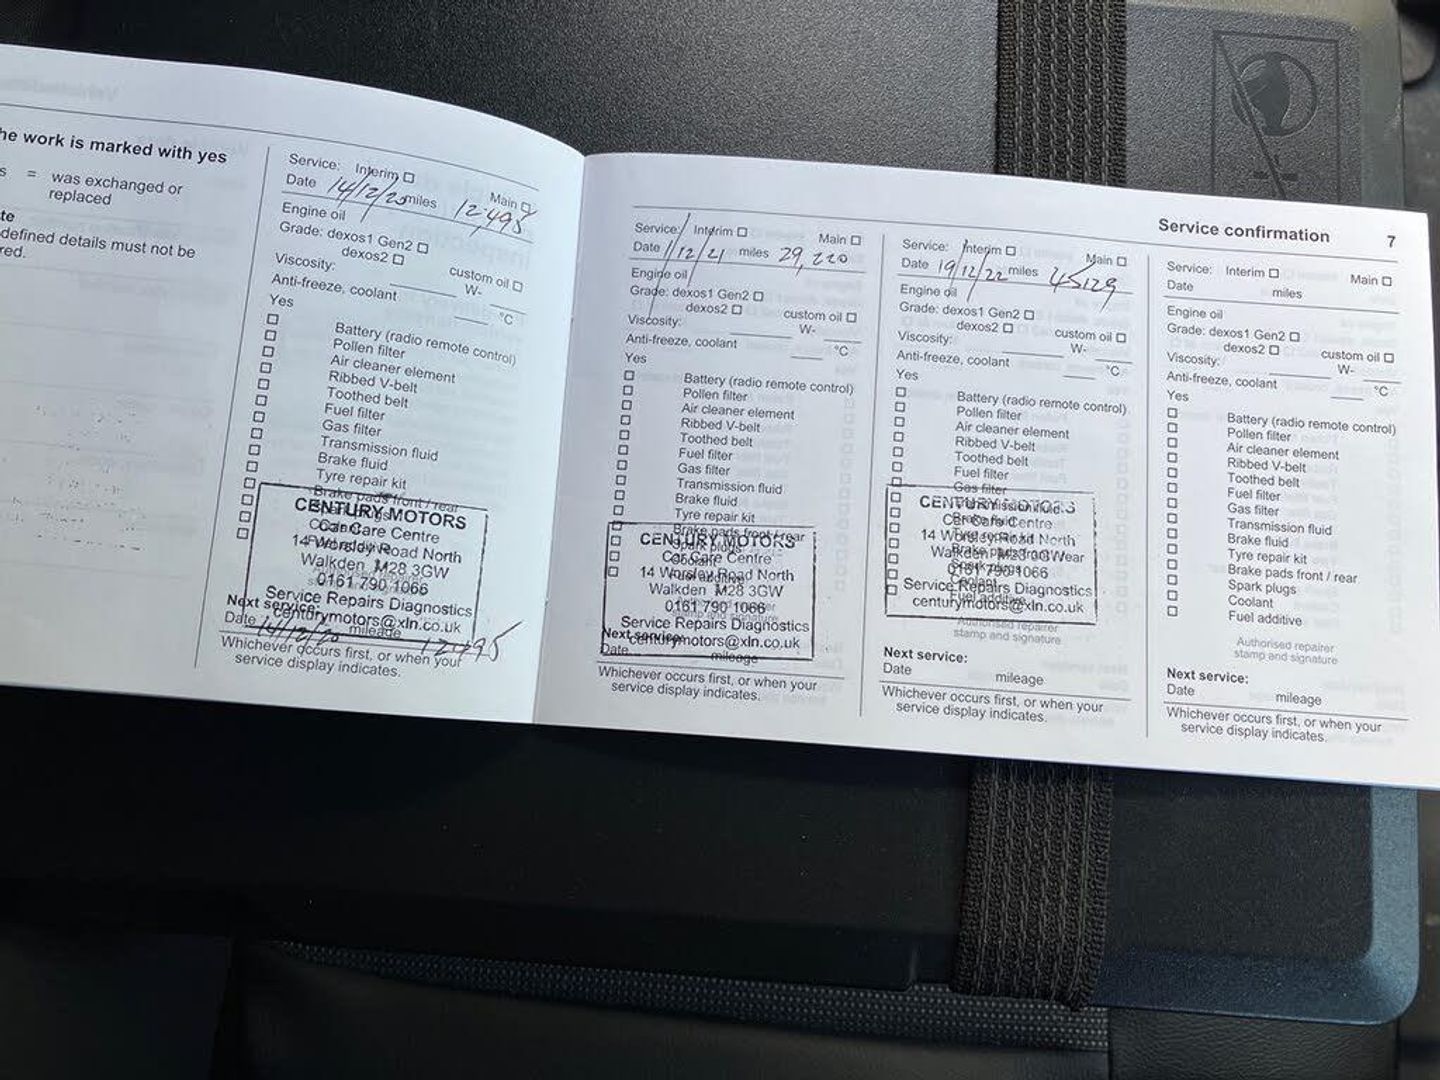 he work is marked with yes
s = was exchanged or
replaced
te
defined details must not be
red.
Service: Interim
Main
Date 14/12/20 miles 12,495
Engine oil
Grade: dexos1 Gen2
dexos2
custom oil
Viscosity: W-
Anti-freeze, coolant °C
Yes
Battery (radio remote control)
Pollen filter
Air cleaner element
Ribbed V-belt
Toothed belt
Fuel filter
Gas filter
Transmission fluid
Brake fluid
Tyre repair kit
Brake pads front / rear
Spark plugs
Coolant
Fuel additive
CENTURY MOTORS
Car Care Centre
14 Worsley Road North
Walkden M28 3GW
0161 790 1066
Service Repairs Diagnostics
centurymotors@xln.co.uk
Next service:
Date 14/12/20 mileage 12495
Whichever occurs first, or when your
service display indicates.
Service confirmation 7
Service: Interim Main
Date 1/12/21 miles 29,220
Engine oil
Grade: dexos1 Gen2
dexos2 custom oil
Viscosity: W-
Anti-freeze, coolant °C
Yes
Battery (radio remote control)
Pollen filter
Air cleaner element
Ribbed V-belt
Toothed belt
Fuel filter
Gas filter
Transmission fluid
Brake fluid
Tyre repair kit
Brake pads front / rear
Spark plugs
Coolant
Fuel additive
CENTURY MOTORS
Car Care Centre
14 Worsley Road North
Walkden M28 3GW
0161 790 1066
Service Repairs Diagnostics
centurymotors@xln.co.uk
Next service:
Date mileage
Whichever occurs first, or when your
service display indicates.
Service: Interim Main
Date 19/12/22 miles 45129
Engine oil
Grade: dexos1 Gen2
dexos2 custom oil
Viscosity: W-
Anti-freeze, coolant °C
Yes
Battery (radio remote control)
Pollen filter
Air cleaner element
Ribbed V-belt
Toothed belt
Fuel filter
Gas filter
Transmission fluid
Brake fluid
Tyre repair kit
Brake pads front / rear
Spark plugs
Coolant
Fuel additive
CENTURY MOTORS
Car Care Centre
14 Worsley Road North
Walkden M28 3GW
0161 790 1066
Service Repairs Diagnostics
centurymotors@xln.co.uk
Authorised repairer
stamp and signature
Next service:
Date mileage
Whichever occurs first, or when your
service display indicates.
Service: Interim Main
Date miles
Engine oil
Grade: dexos1 Gen2
dexos2 custom oil
Viscosity: W-
Anti-freeze, coolant °C
Yes
Battery (radio remote control)
Pollen filter
Air cleaner element
Ribbed V-belt
Toothed belt
Fuel filter
Gas filter
Transmission fluid
Brake fluid
Tyre repair kit
Brake pads front / rear
Spark plugs
Coolant
Fuel additive
Authorised repairer
stamp and signature
Next service:
Date mileage
Whichever occurs first, or when your
service display indicates.